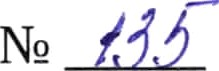 № 135